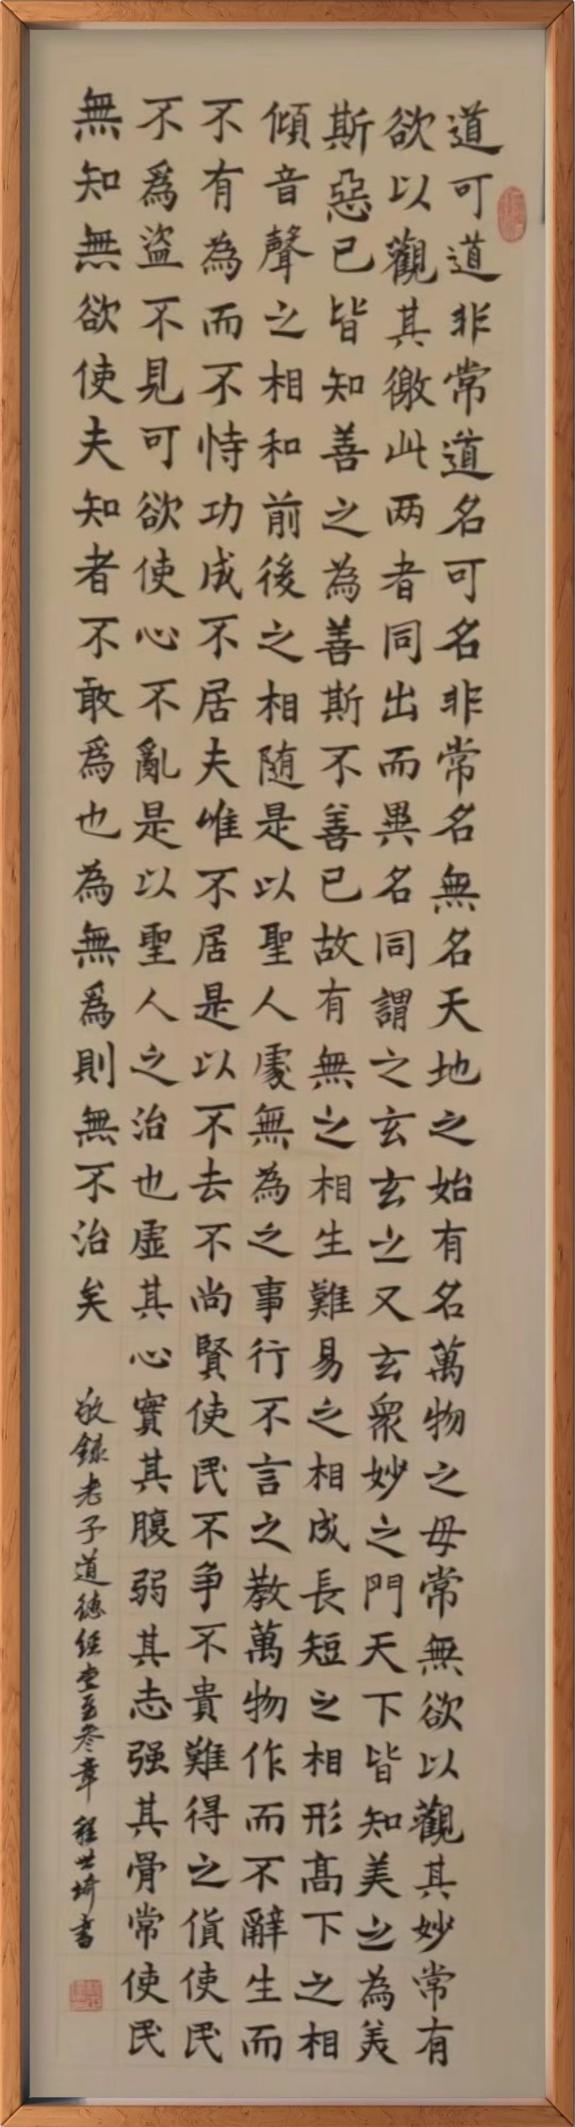 道可道非常道名可名非常名無名天地之始有名萬物之母常無欲以觀其妙常有
欲以觀其徼此两者同出而異名同謂之玄玄之又玄衆妙之門天下皆知美之為美
斯惡已皆知善之為善斯不善已故有無之相生難易之相成長短之相形高下之相
傾音聲之相和前後之相随是以聖人處無為之事行不言之教萬物作而不辭生而
不有為而不恃功成不居夫唯不居是以不去不尚賢使民不争不貴難得之貨使民
不為盜不見可欲使心不亂是以聖人之治也虛其心實其腹弱其志强其骨常使民
無知無欲使夫知者不敢為也為無為則無不治矣
敬錄老子道德經壹至叁章 程世埼書